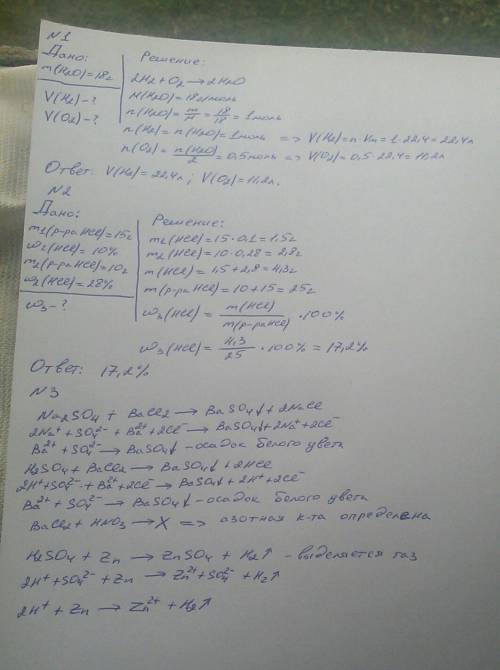 N1
Дано: Решение:
m(H2O)=18г
2H2+O2→2H2O
V(H2)-?
M(H2O)=18г/моль
V(O2)-?
n(H2O)=m/M=18/18=1моль
n(H2)=n(H2O)=1моль => V(H2)=n·Vm=1·22,4=22,4л
n(O2)=n(H2O)/2=0,5моль => V(O2)=0,5·22,4=11,2л
Ответ: V(H2)=22,4л; V(O2)=11,2л.
N2
Дано: Решение:
m1(р-ра HCl)=15г
m1(HCl)=15·0,1=1,5г
w1(HCl)=10%
m2(HCl)=10·0,28=2,8г
m2(р-ра HCl)=10г
m(HCl)=1,5+2,8=4,3г
w2(HCl)=28%
m(р-ра HCl)=10+15=25г
w3-?
w3(HCl)=m(HCl)/m(р-ра HCl)·100%
w3(HCl)=4,3/25·100%=17,2%
Ответ: 17,2%
N3
Na2SO4+BaCl2→BaSO4↓+2NaCl
2Na⁺+SO4²⁻+Ba²⁺+2Cl⁻→BaSO4↓+2Na⁺+2Cl⁻
Ba²⁺+SO4²⁻→BaSO4↓-осадок белого цвета
H2SO4+BaCl2→BaSO4↓+2HCl
2H⁺+SO4²⁻+Ba²⁺+2Cl⁻→BaSO4↓+2H⁺+2Cl⁻
Ba²⁺+SO4²⁻→BaSO4↓-осадок белого цвета
BaCl2+HNO3→X => азотная к-та определена
H2SO4+Zn→ZnSO4+H2↑ -выделяется газ
2H⁺+SO4²⁻+Zn→Zn²⁺+SO4²⁻+H2↑
2H⁺+Zn→Zn²⁺+H2↑